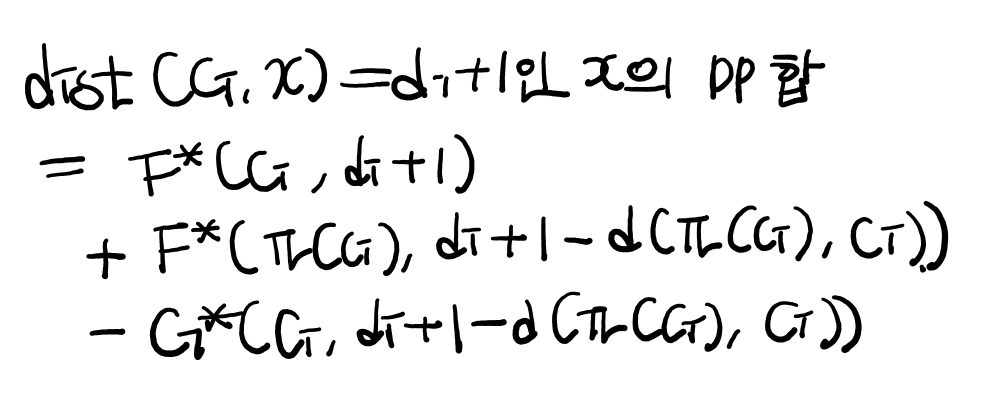 dist (Ci, x) = di+1인 x의 DP 합
= F*(Ci, di+1)
+ F*(π(Ci), di+1-d(π(Ci), Ci))
- G*(Ci, di+1-d(π(Ci), Ci))